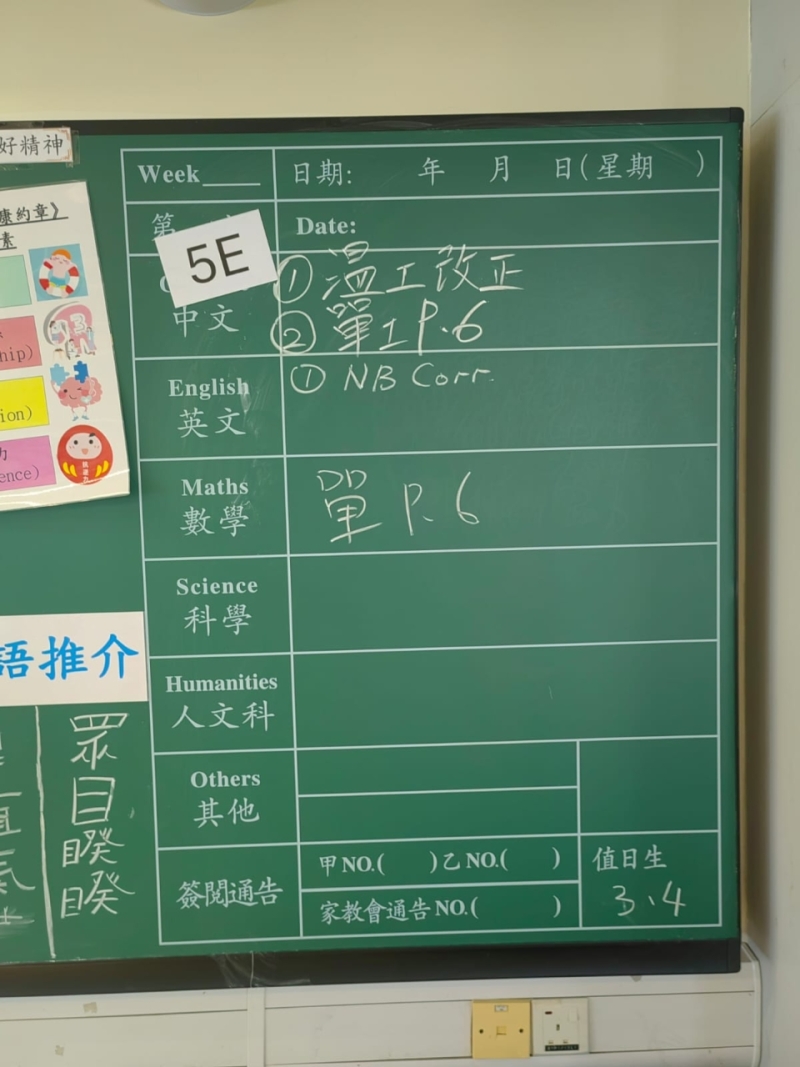 好精神
康約章》
素
hip)
ion)
力
ence)
Week____ 日期: 年 月 日(星期 )
第
5E
Date:
中文
① 溫工改正
② 單工 P.6
English
英文
① NB Corr.
Maths
數學
單 P.6
Science
科學
Humanities
人文科
Others
其他
簽閱通告
甲NO.( )乙NO.( )
家教會通告NO.( )
值日生
3、4
語推介
眾
目
睽
睽